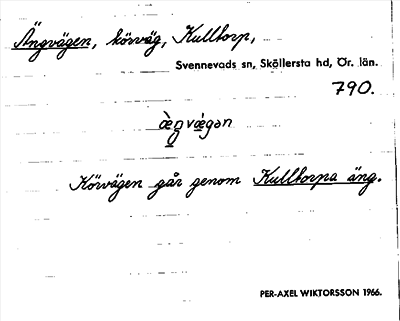 Ängvägen, körväg, Kulltorp,
Svennevads sn, Sköllersta hd, Ör. län.
790.
æ̀ŋvǽgən
Körvägen går genom Kulltorpa äng.
PER-AXEL WIKTORSSON 1966.